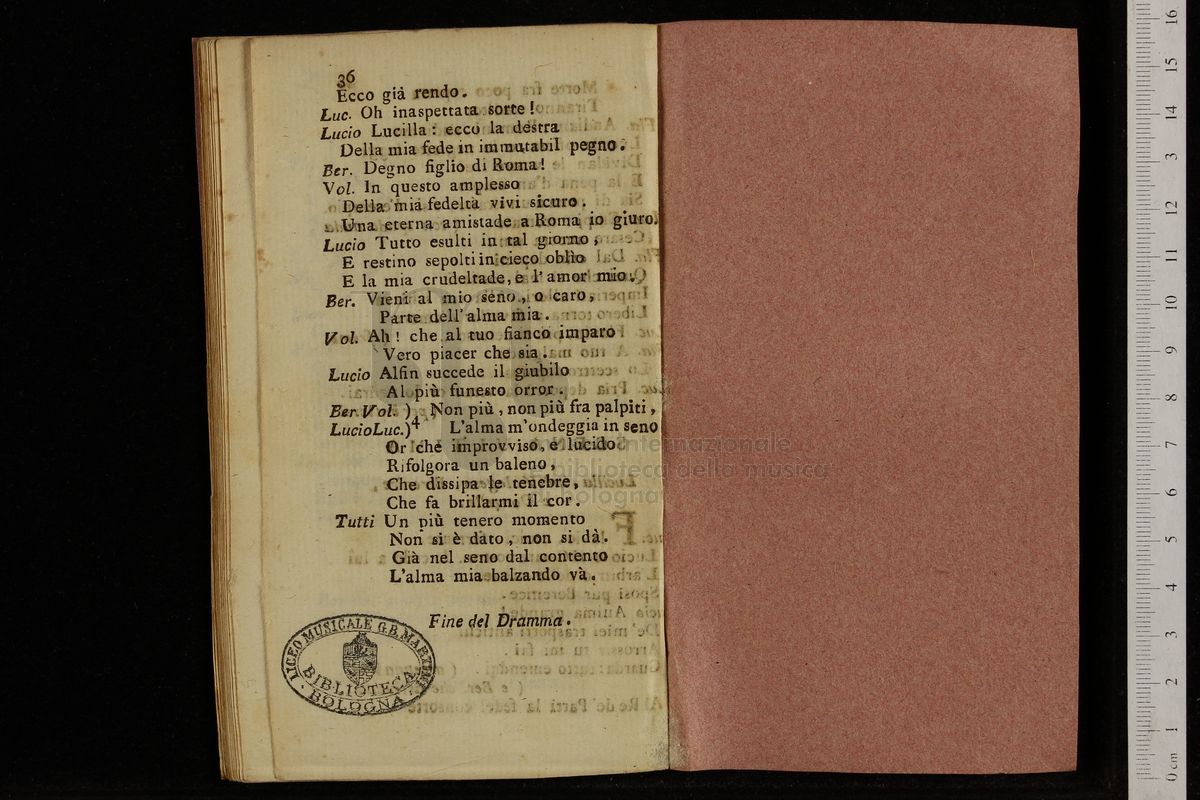 36
Ecco già rendo.
Luc. Oh inaspettata sorte!
Lucio Lucilla: ecco la destra
Della mia fede in immutabil pegno.
Ber. Degno figlio di Roma!
Vol. In questo amplesso
Della mia fedeltà vivi sicuro.
Una eterna amistade a Roma io giuro.
Lucio Tutto esulti in tal giorno,
E restino sepolti in cieco oblìo
E la mia crudeltade, e l'amor mio.
Ber. Vieni al mio seno, o caro,
Parte dell'alma mia.
Vol. Ah! che al tuo fianco imparo
Vero piacer che sia.
Lucio Alfin succede il giubilo
Al più funesto orror.
Ber. Vol. ) Non più, non più fra palpiti,
Lucio Luc.)4 L'alma m'ondeggia in seno
Or che improvviso, e lucido
Rifolgora un baleno,
Che dissipa le tenebre,
Che fa brillarmi il cor.
Tutti Un più tenero momento
Non si è dato, non si dà.
Già nel seno dal contento
L'alma mia balzando và.
Fine del Dramma.
LICEO MUSICALE G.B. MARTINI
BIBLIOTECA
BOLOGNA
internazionale
biblioteca della musica
bologna
0 cm 1 2 3 4 5 6 7 8 9 10 11 12 13 14 15 16